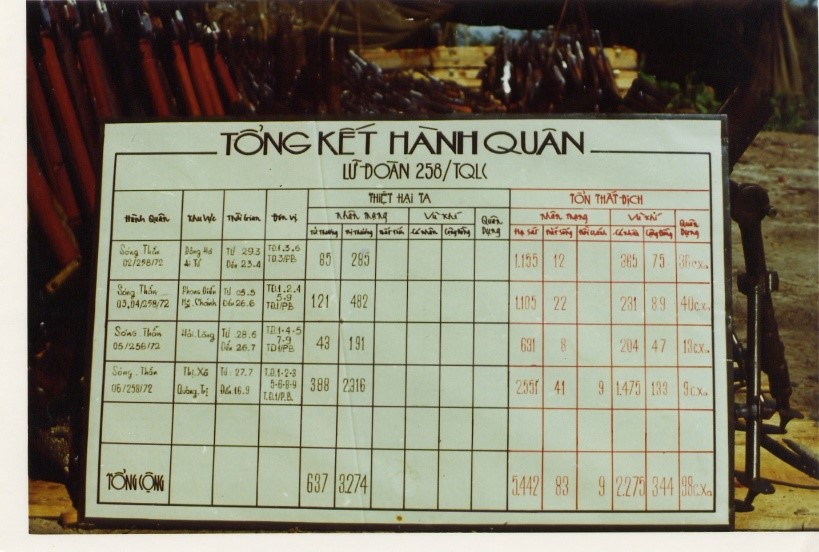 TỔNG KẾT HÀNH QUÂN
LỮ ĐOÀN 258/TQLC
THIỆT HẠI TA TỔN THẤT ĐỊCH
Hành Quân Khu Vực Thời Gian Đơn vị Nhân Mạng Vũ Khí Quân Dụng Nhân Mạng Vũ Khí Quân Dụng
Tử Thương Bị Thương Mất Tích Cá Nhân Cộng Đồng Hạ Sát Bắt Sống Cá Nhân Cộng Đồng
Sóng Thần Đông Hà Từ 29.3 TĐ.1.3.6 85 285 1.155 12 365 75 36 c.Xa
02/258/72 Ái Tử Đến 23.4 TĐ.3/PB
Sóng Thần Phong Điền Từ 05.5 TĐ.1.2.4 121 482 1.105 22 231 89 40 c.Xa
03,04/258/72 Mỹ Chánh Đến 26.6 5.9
TĐ.1/PB
Sóng Thần Hải Lăng Từ 28.6 TĐ.1-4-5 43 191 631 8 204 47 13 c.Xa
05/258/72 Đến 26.7 7.9
TĐ1/PB
Sóng Thần Thị Xã Từ 27.7 T.Đ.1-2-3 388 2.316 2.551 41 9 1.475 133 9 c.Xa
06/258/72 Quảng Trị Đến 16.9 5-6-8-9
T.Đ.1/P.B.
TỔNG CỘNG 637 3.274 5.442 83 9 2.275 344 98 c.Xa